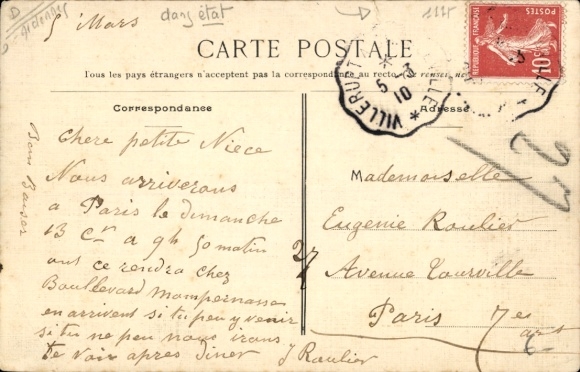 D
Ardennes
5 Mars
dans état
CARTE POSTALE
Tous les pays étrangers n'acceptent pas la correspondance au recto
Correspondance
Adresse
RÉPUBLIQUE FRANÇAISE
POSTES
10c
VILLERUPT
5 -3
10
Chere petite Niece
Nous arriverons
a Paris le dimanche
13 cr a 9h 50 matin
ont ce rendra chez
Boullevard Mompernasse
en arrivent si tu peu y venir
si tu ne peu nous irons
te voir apres diner
J Roulier
Bons Baiser
Mademoiselle
Eugenie Roulier
27
Avenue Tourville
Paris 7es arst
6-